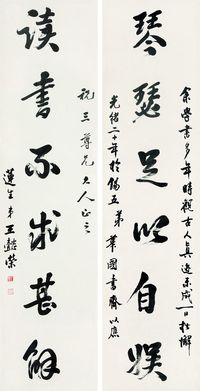 琴瑟足以自娱
读书不求甚解
余学书多年时观古人真迹未成一日松懈
光绪二十年於锡五弟华国书斋以应
祝三尊兄大人正之
莲生弟王懿荣